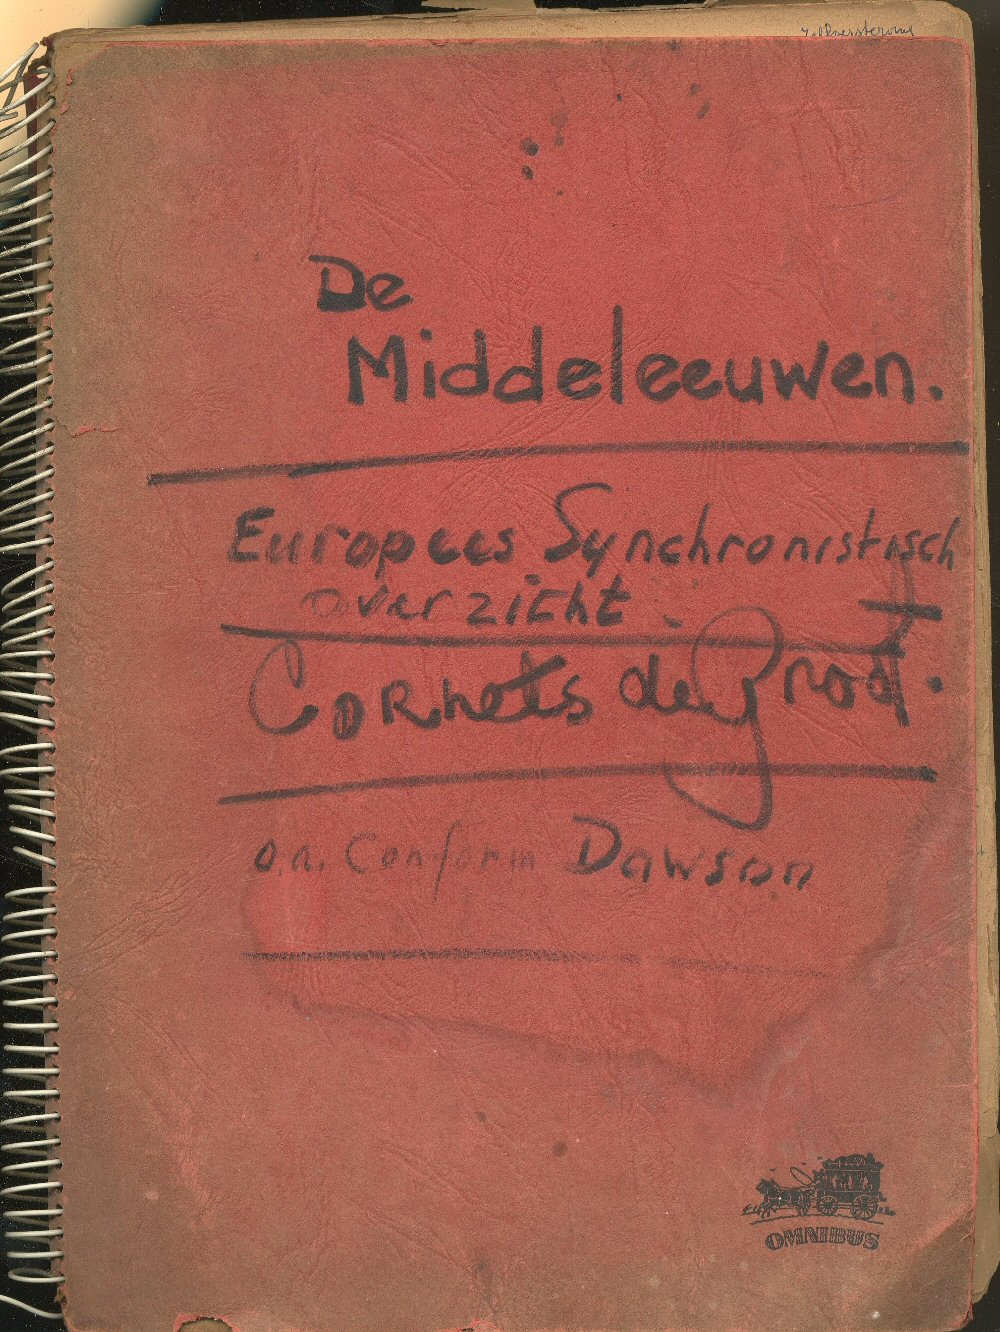 De
Middeleeuwen.
Europees Synchronistisch
overzicht.
Cornets de Groot.
o.a. Conform Dawson
OMNIBUS